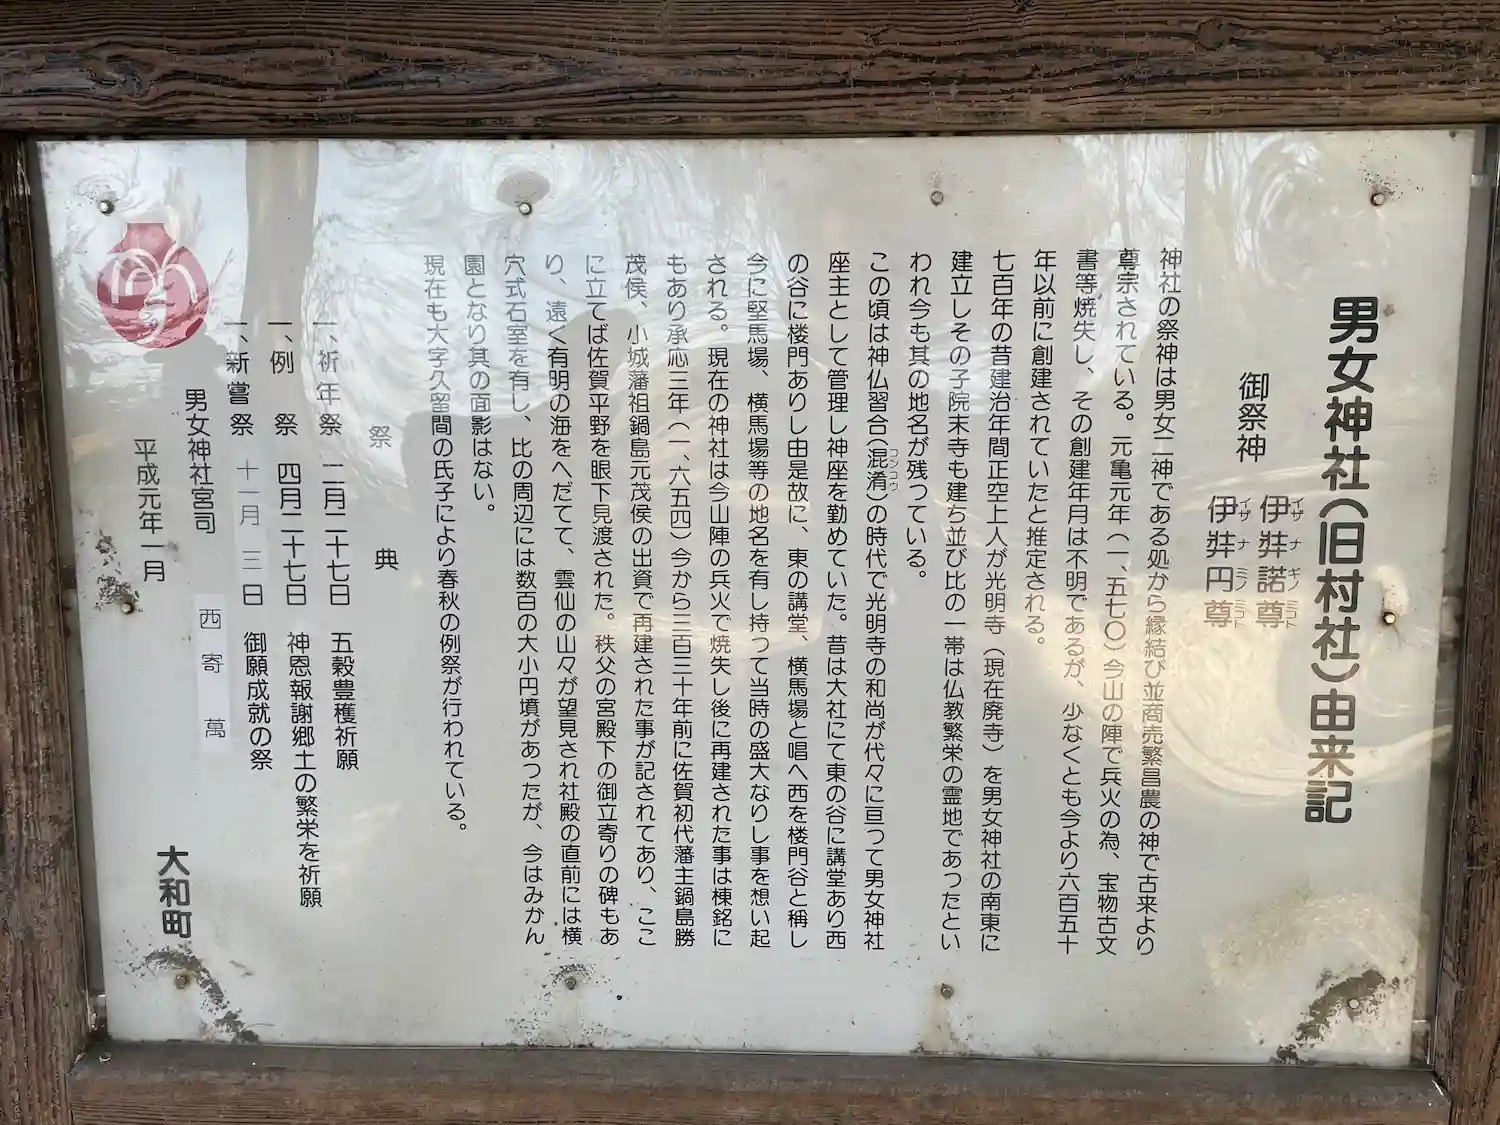 男女神社(旧村社)由来記
御祭神
伊弉諾尊
イザナギノミコト
伊弉円尊
イザナミノミコト
神社の祭神は男女二神である処から縁結び並商売繁昌農の神で古来より
尊宗されている。元亀元年(一、五七〇)今山の陣で兵火の為、宝物古文
書等焼失し、その創建年月は不明であるが、少なくとも今より六百五十
年以前に創建されていたと推定される。
七百年の昔建治年間正空上人が光明寺(現在廃寺)を男女神社の南東に
建立しその子院末寺も建ち並び比の一帯は仏教繁栄の霊地であつたとい
われ今も其の地名が残つている。
この頃は神仏習合(混淆)の時代で光明寺の和尚が代々に亘つて男女神社
コンコウ
座主として管理し神座を勤めていた。昔は大社にて東の谷に講堂あり西
の谷に楼門ありし由是故に、東の講堂、横馬場と唱へ西を楼門谷と稱し
今に堅馬場、横馬場等の地名を有し持つて当時の盛大なりし事を想い起
される。現在の神社は今山陣の兵火で焼失し後に再建された事は棟銘に
もあり承応三年(一、六五四)今から三百三十年前に佐賀初代藩主鍋島勝
茂侯、小城藩祖鍋島元茂侯の出資で再建された事が記されてあり、ここ
に立てば佐賀平野を眼下見渡された。秩父の宮殿下の御立寄りの碑もあ
り、遠く有明の海をへだてて、雲仙の山々が望見され社殿の直前には横
穴式石室を有し、比の周辺には数百の大小円墳があつたが、今はみかん
園となり其の面影はない。
現在も大字久留間の氏子により春秋の例祭が行われている。
祭典
一、祈年祭 二月二十七日 五穀豊穫祈願
一、例祭 四月二十七日 神恩報謝郷土の繁栄を祈願
一、新嘗祭 十一月三日 御願成就の祭
男女神社宮司 西寄萬
平成元年一月
大和町